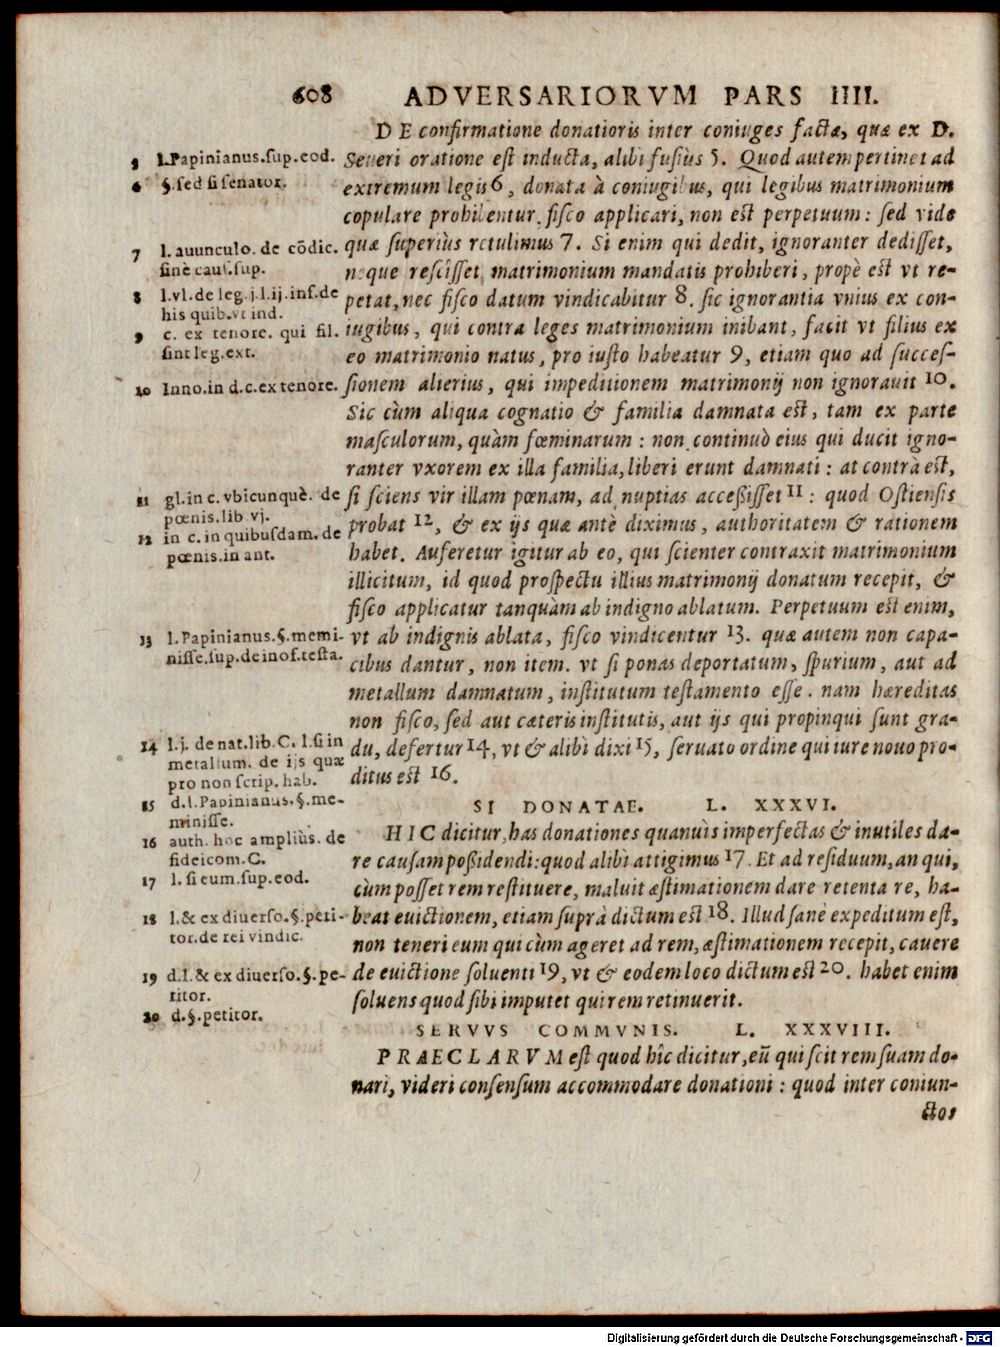 608 ADVERSARIORVM PARS IIII.
DE confirmatione donationis inter coniuges factæ, quæ ex D.
Seueri oratione est inducta, alibi fusiùs 5. Quod autem pertinet ad
extremum legis 6, donata à coniugibus, qui legibus matrimonium
copulare prohibentur, fisco applicari, non est perpetuum: sed vide
quæ superiùs retulimus 7. Si enim qui dedit, ignoranter dedisset,
neque rescîsset matrimonium mandatis prohiberi, propè est vt re-
petat, nec fisco datum vindicabitur 8. sic ignorantia vnius ex con-
iugibus, qui contra leges matrimonium inibant, facit vt filius ex
eo matrimonio natus, pro iusto habeatur 9, etiam quo ad succes-
sionem alterius, qui impeditionem matrimonij non ignorauit 10.
Sic cùm aliqua cognatio & familia damnata est, tam ex parte
masculorum, quàm fœminarum: non continuò eius qui ducit igno-
ranter vxorem ex illa familia, liberi erunt damnati: at contrà est,
si sciens vir illam pœnam, ad nuptias accessisset 11: quod Ostiensis
probat 12, & ex ijs quæ antè diximus, authoritatem & rationem
habet. Auferetur igitur ab eo, qui scienter contraxit matrimonium
illicitum, id quod prospectu illius matrimonij donatum recepit, &
fisco applicatur tanquàm ab indigno ablatum. Perpetuum est enim,
vt ab indignis ablata, fisco vindicentur 13. quæ autem non capa-
cibus dantur, non item. vt si ponas deportatum, spurium, aut ad
metallum damnatum, institutum testamento esse. nam hæreditas
non fisco, sed aut cæteris institutis, aut ijs qui propinqui sunt gra-
du, defertur 14, vt & alibi dixi 15, seruato ordine qui iure nouo pro-
ditus est 16.
SI DONATAE. L. XXXVI.
HIC dicitur, has donationes quanuis imperfectas & inutiles da-
re causam possidendi: quod alibi attigimus 17. Et ad residuum, an qui,
cùm posset rem restituere, maluit æstimationem dare retenta re, ha-
beat euictionem, etiam suprà dictum est 18. Illud sanè expeditum est,
non teneri eum qui cùm ageret ad rem, æstimationem recepit, cauere
de euictione soluenti 19, vt & eodem loco dictum est 20. habet enim
soluens quod sibi imputet qui rem retinuerit.
SERVVS COMMVNIS. L. XXXVIII.
PRAECLARVM est quod hîc dicitur, eū qui scit rem suam do-
nari, videri consensum accommodare donationi: quod inter coniun-
ctos
5 l.Papinianus.sup.eod.
6 §.sed si senator.
7 l. auunculo. de cōdic.
sinè caus.sup.
8 l.vl.de leg.j.l.ij.inf.de
his quib.vt ind.
9 c. ex tenore. qui fil.
sint leg.ext.
10 Inno.in d.c.ex tenore.
11 gl.in c. vbicunquè. de
pœnis.lib vj.
12 in c.in quibusdam.de
pœnis.in ant.
13 l.Papinianus.§.memi-
nisse.sup.de inof.testa.
14 l.j. de nat.lib.C. l.si in
metallum. de ijs quæ
pro non scrip. hab.
15 d.l.Papinianus.§.me-
minisse.
16 auth. hoc ampliùs. de
fideicom.C.
17 l. si eum.sup.eod.
18 l.& ex diuerso.§.peti-
tor.de rei vindic.
19 d.l.& ex diuerso.§.pe-
titor.
20 d.§.petitor.
Digitalisierung gefördert durch die Deutsche Forschungsgemeinschaft - DFG